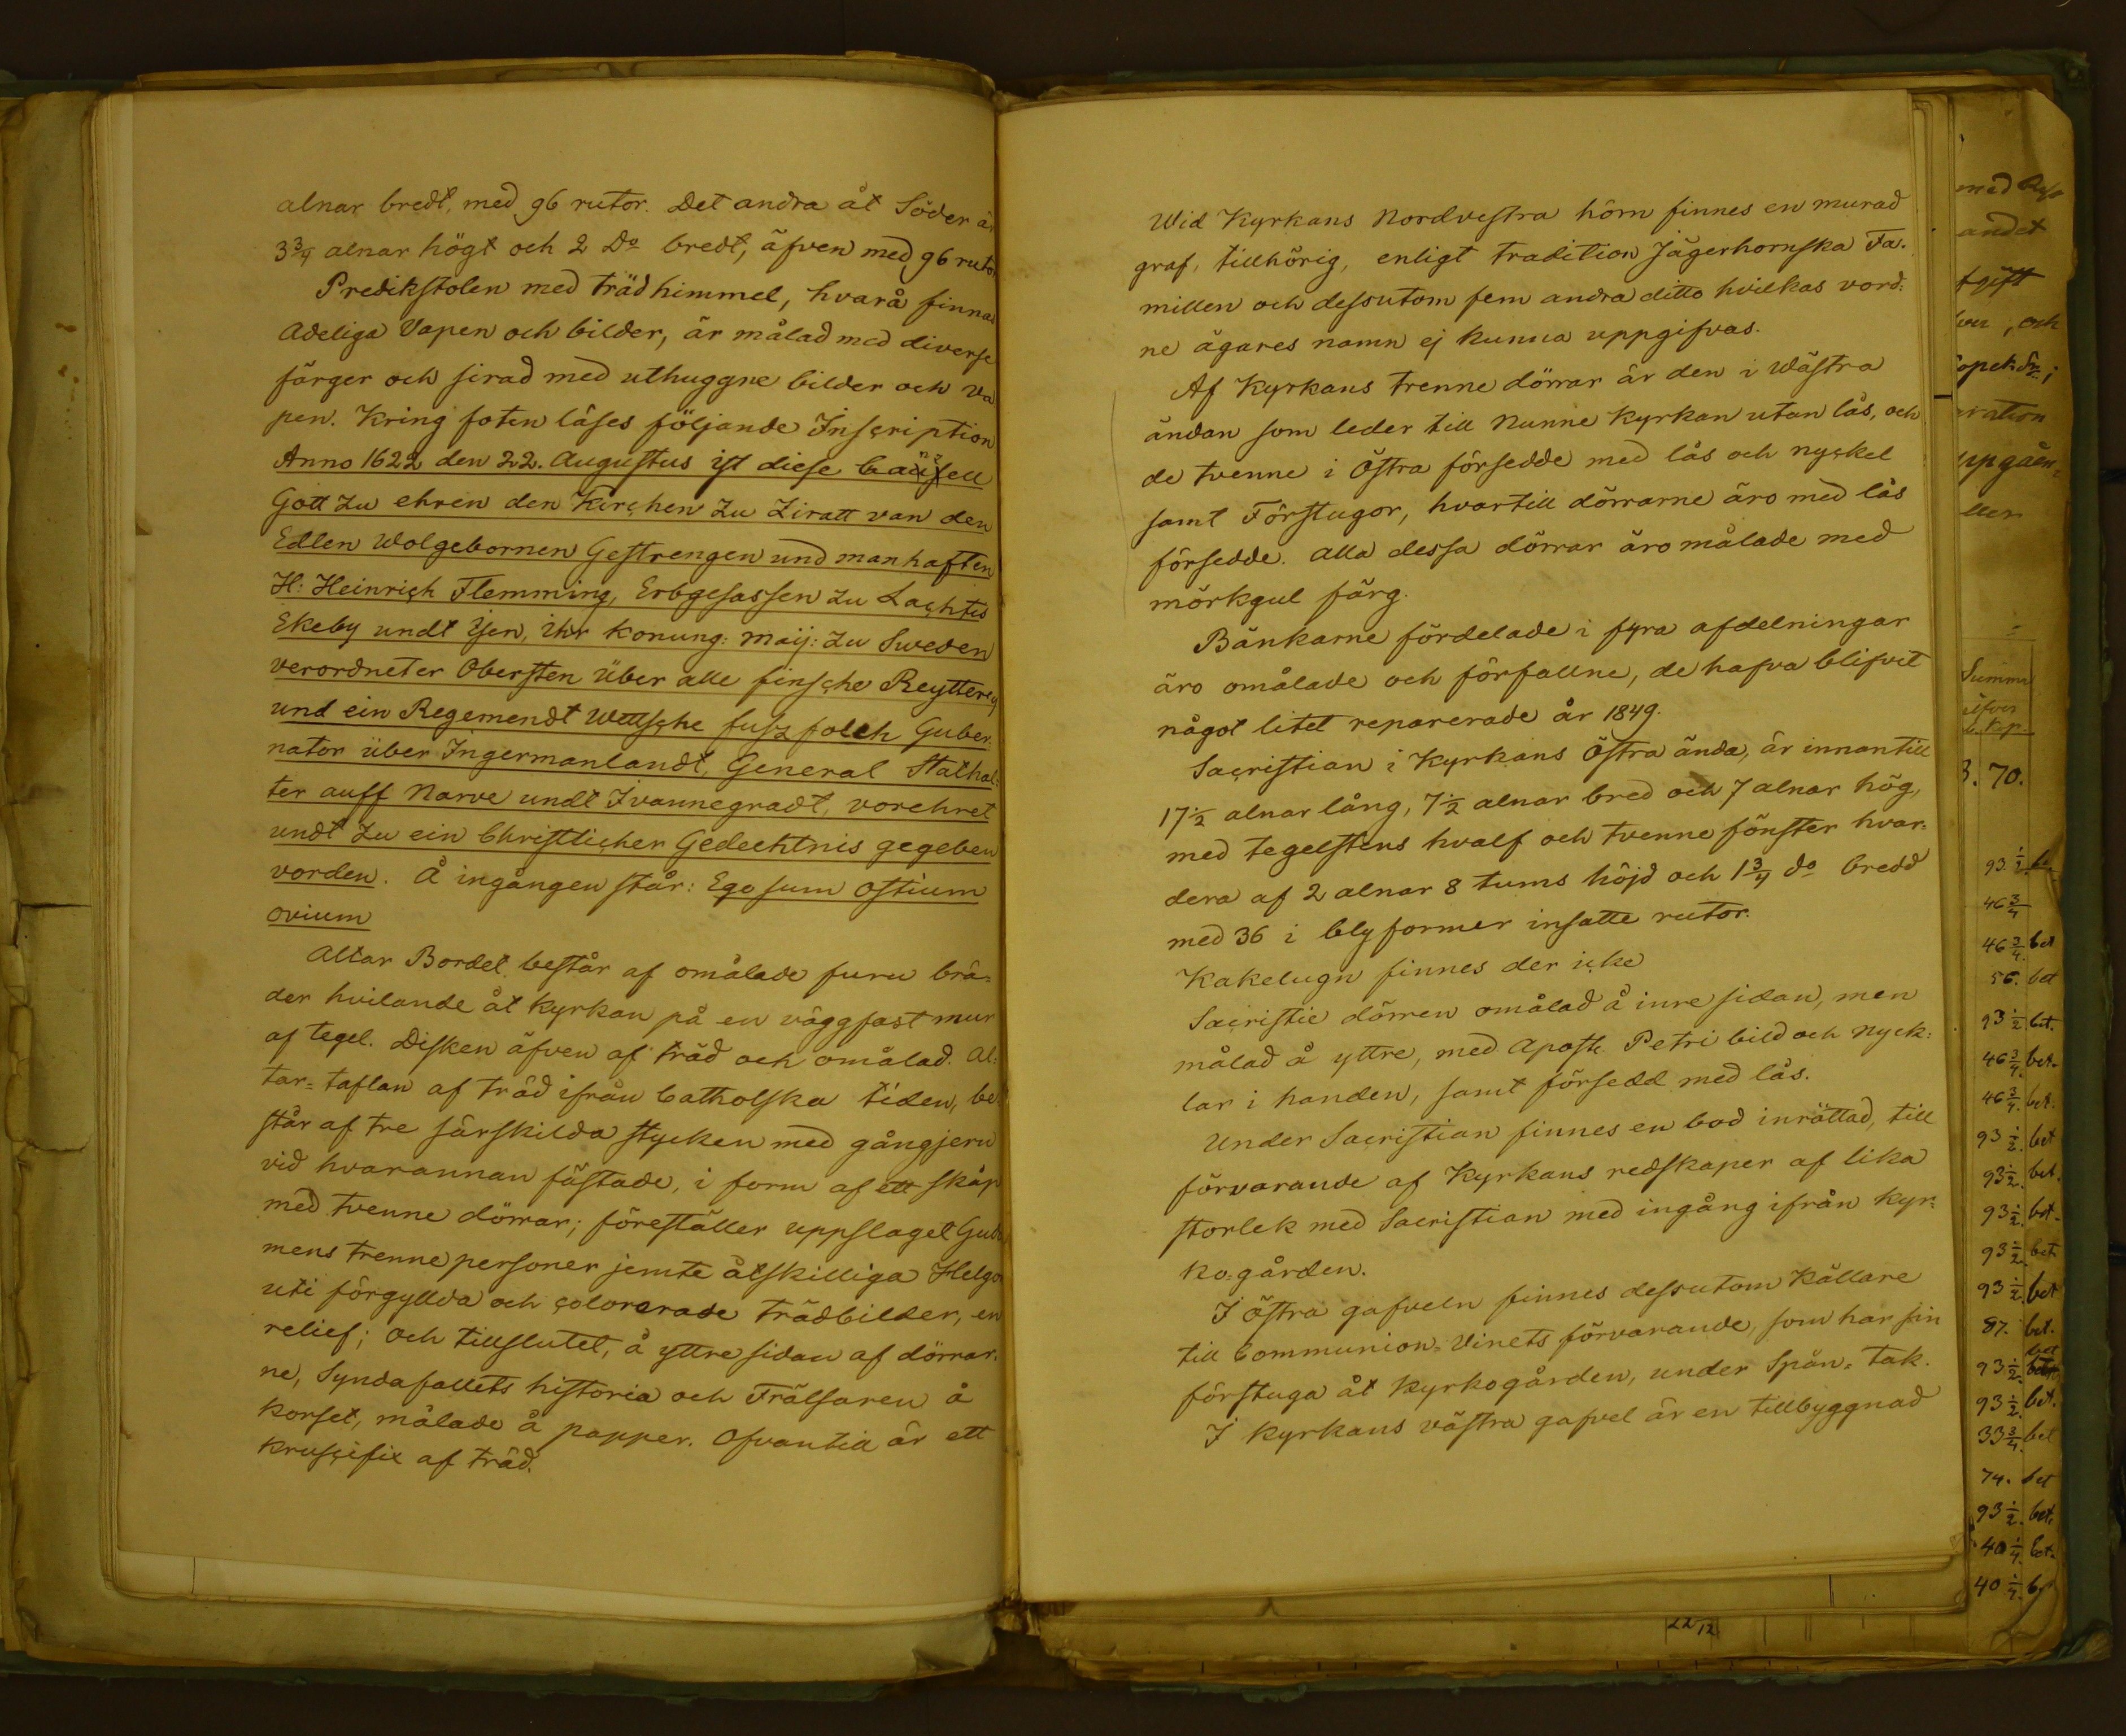 alnar bredt, med 96 rutor. Det andra åt Söder är
3¾ alnar högt och 2 Do bredt, äfven med 96 rutor
Predikstolen med trädhimmel, hvarå finnas
Adeliga Vapen och bilder, är målad med diverse
färger och sirad med uthuggne bilder och va
pen. Kring foten läses följande Inscription
Anno 1622 den 22. Augustus ist diese
Gott zu ehren den Kirchen zu Ziratt van den
Edlen Wolgebornen Gestrengen und manhaften
H: Heinrich Flemming, Erbgesassen zu Lachtis
Ekeby undt Yen, Ihr Konung: Maij: zu Sweden
verordneter Obersten Über alle finsche Reytterey
und ein Regemendt Wettsche fusz folch Guber:
nator über Ingermanlandt, General Stathal:
ter auff Narve undt Ivannegradt, vorehret
undt zu ein Christlicher Gedechtnis gegeben
vorden. Å ingången står: Ego sum ostium
ovium
Altar Bordet består af omålade furu brä=
der hvilande åt Kyrkan på en väggfast mur
af tegel. Disken äfven af träd och omålad. Al:
tar=taflan af träd ifrån Catholska tiden, be
står af tre särskilda stycken med gångjern
vid hvarannan fästade, i form af ett skåp
med tvenne dörrar; föreställer uppslaget Gudo
mens trenne personer jemte åtskilliga Helgon
uti förgyllda och colorerade trädbilder, en
relief; och tillslutet, å yttre sidan af dörrar:
ne, Syndafallets historia och Frälsaren å
korset, målade å papper. Ofvantill är ett
Kruscifix af träd.
Wid Kyrkans Nordvestra hörn finnes en murad
graf, tillhörig, enligt tradition Jägerhornska Fa.
millen och dessutom fem andra ditto hvilkas vord:
ne ägares namn ej kunna uppgifvas.
Af Kyrkans trenne dörrar är den i Wästra
ändan som leder till Nunne Kyrkan utan lås, och
de tvenne i Östra försedde med lås och nyckel
samt Förstugor, hvartill dörrarne äro med lås
försedde. Alla dessa dörrar äro målade med
mörkgul färg.
Bänkarne fördelade i fyra afdelningar
äro omålade och förfallne, de hafva blifvit
något litet reparerade år 1849.
Sacristian i Kyrkans Östra ända, är innantill
17½ alnar lång, 7½ alnar bred och 7 alnar hög,
med tegelstens hvalf och tvenne fönster hvar:
dera af 2 alnar 8 tums höjd och 1¾ do bredd
med 36 i bly former insatte rutor.
Kakelugn finnes der icke
Sacristie dörren omålad å inre sidan, men
målad å yttre, med Apost. Petri bild och nyck:
lar i handen, samt försedd med lås.
Under Sacristian finnes en bod inrättad, till
förvarande af Kyrkans redskaper af lika
storlek med Sacristian med ingång ifrån Kyr:
ko=gården.
I östra gafveln finnes dessutom Källare
till Communion=Vinets förvarande, som har sin
förstuga åt Kyrkogården, under Spån=tak.
I Kyrkans västra gafvel är en tillbyggnad
med
andet
och
Summa
Kop.
3. 70.
93½
46¾
46¾ bet
56. bet
93½ bet.
46¾ bet.
46¾ bet.
93½ bet
93½ bet.
93½ bet.
93½ bet
93½ bet
87. bet.
93½ bet
93½ bet.
33¾ bet
74. bet
93½ bet.
40¼ bet.
40¼